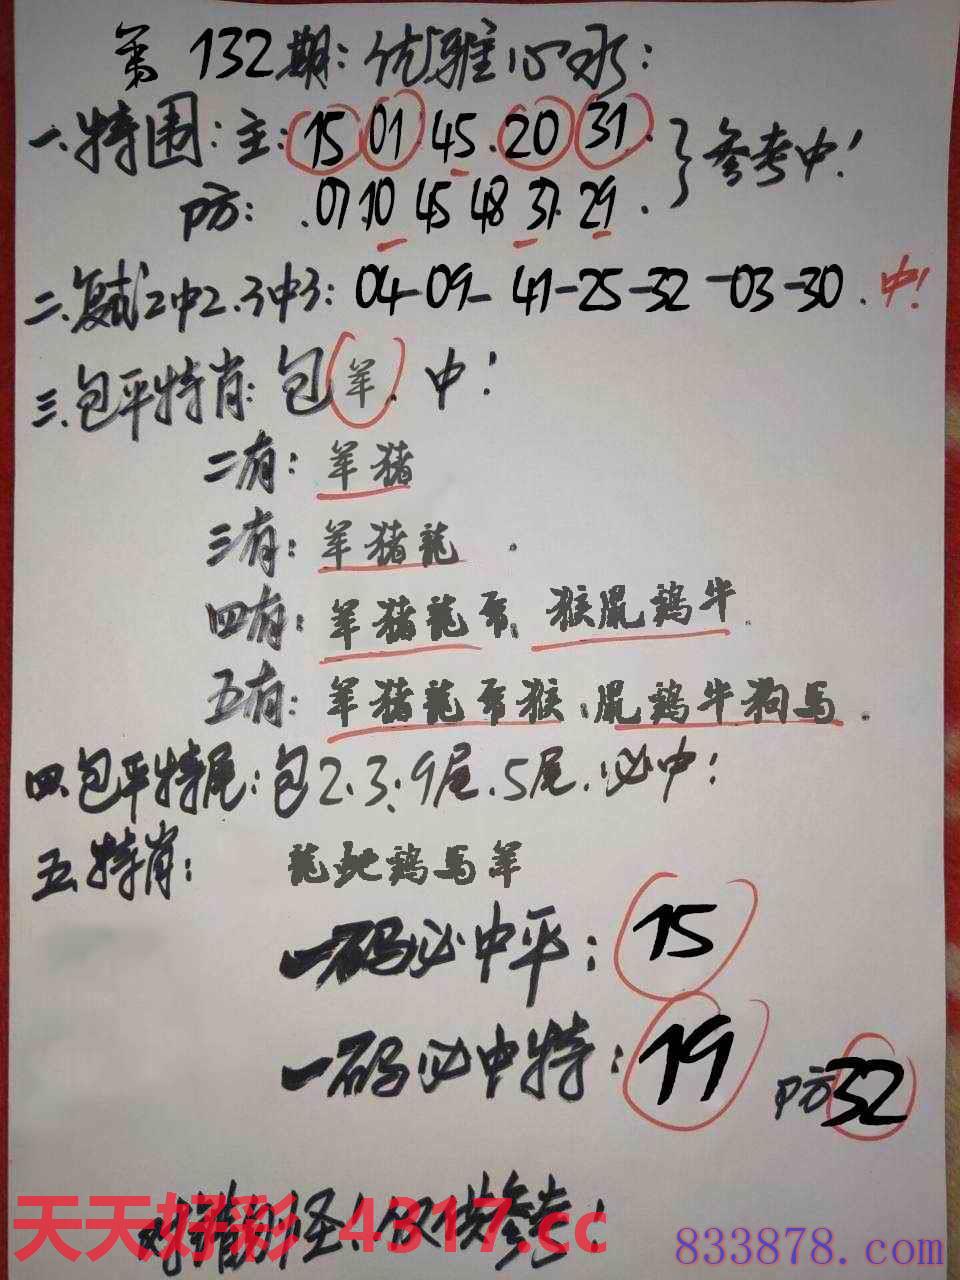 第132期:优雅心水:
一.特围:主:15 01 45.20 31.}参考中!
防:.07.10 45 48 37.29.
二.复试2中2.3中3:04-09-41-25-32-03-30.中!
三.包平特肖:包羊.中!
二有:羊猪
三有:羊猪龍.
四有:羊猪龍 猴鼠鸡牛.
五有:羊猪龍 猴:鼠鸡牛狗马.
四.包平特尾:包2.3:9尾.5尾.必中:
五.特肖:龍蛇鸡马羊
一码必中平:15
一码必中特:19 防32
仅供参考!
天天好彩 4317.cc
833878.com